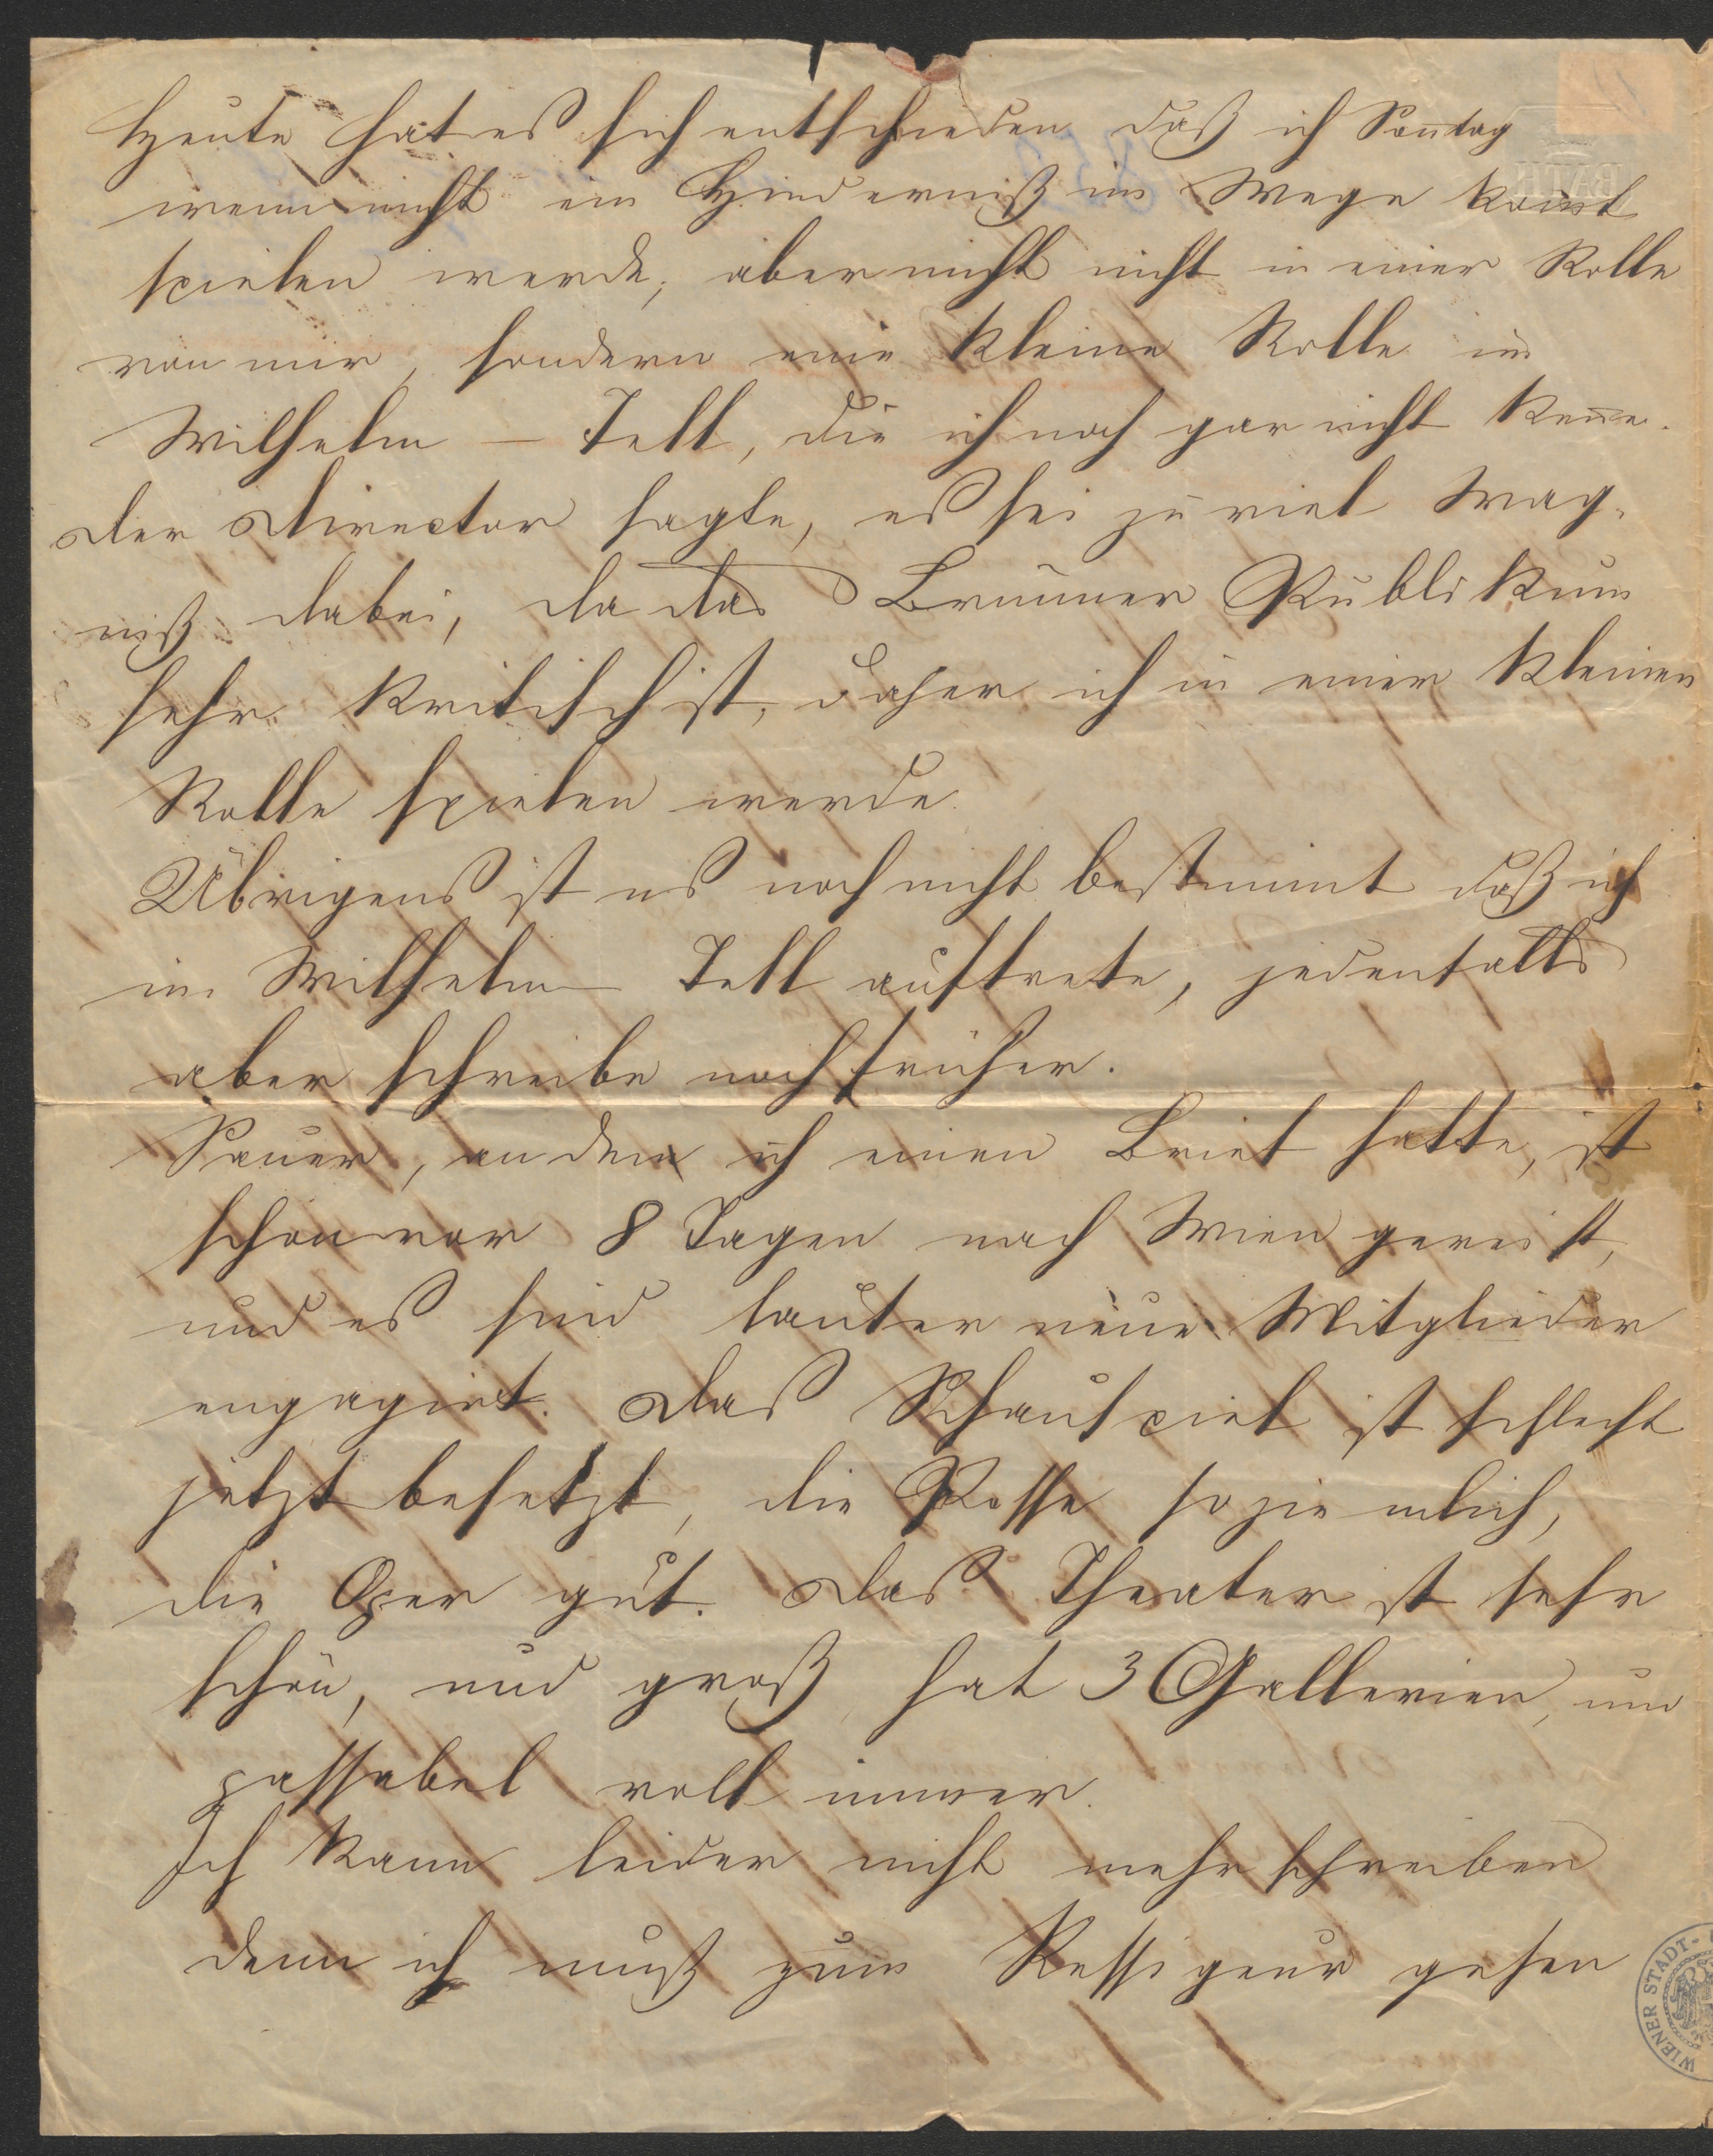 Heute hat es sich entschieden daß ich Soñtag
wenn nicht ein Hinderniß im Wege kom̃t
spielen werde, aber nicht nicht in einer Rolle
von mir, sondern eine kleine Rolle im
Wilhelm – Tell, die ich noch gar nicht keñe.
Der Director sagte, es sei zu viel Wag-
niß dabei, da das Brünner Publikum
sehr kritisch ist, daher ich in einer kleinen
Rolle spielen werde.
Übrigens ist es noch nicht bestimmt daß ich
im Wilhelm Tell auftrete, jedenfalls
aber schreibe noch früher.
Sauer, an den ich einen Brief hatte, ist
schon vor 8 Tagen nach Wien gereist,
und es sind lauter neue Mitglieder
engagirt. Das Schauspiel ist schlecht
jetzt besetzt, die Posse so ziemlich,
die Oper gut. Das Theater ist sehr
schön, und groß, hat 3 Gallerien, und
passabel voll immer.
Ich kann leider nicht mehr schreiben
denn ich muß zum Ressigeur gehen
WIENER STADT-